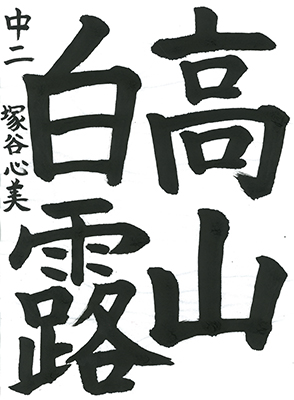 高山
白露
中二 塚谷心美